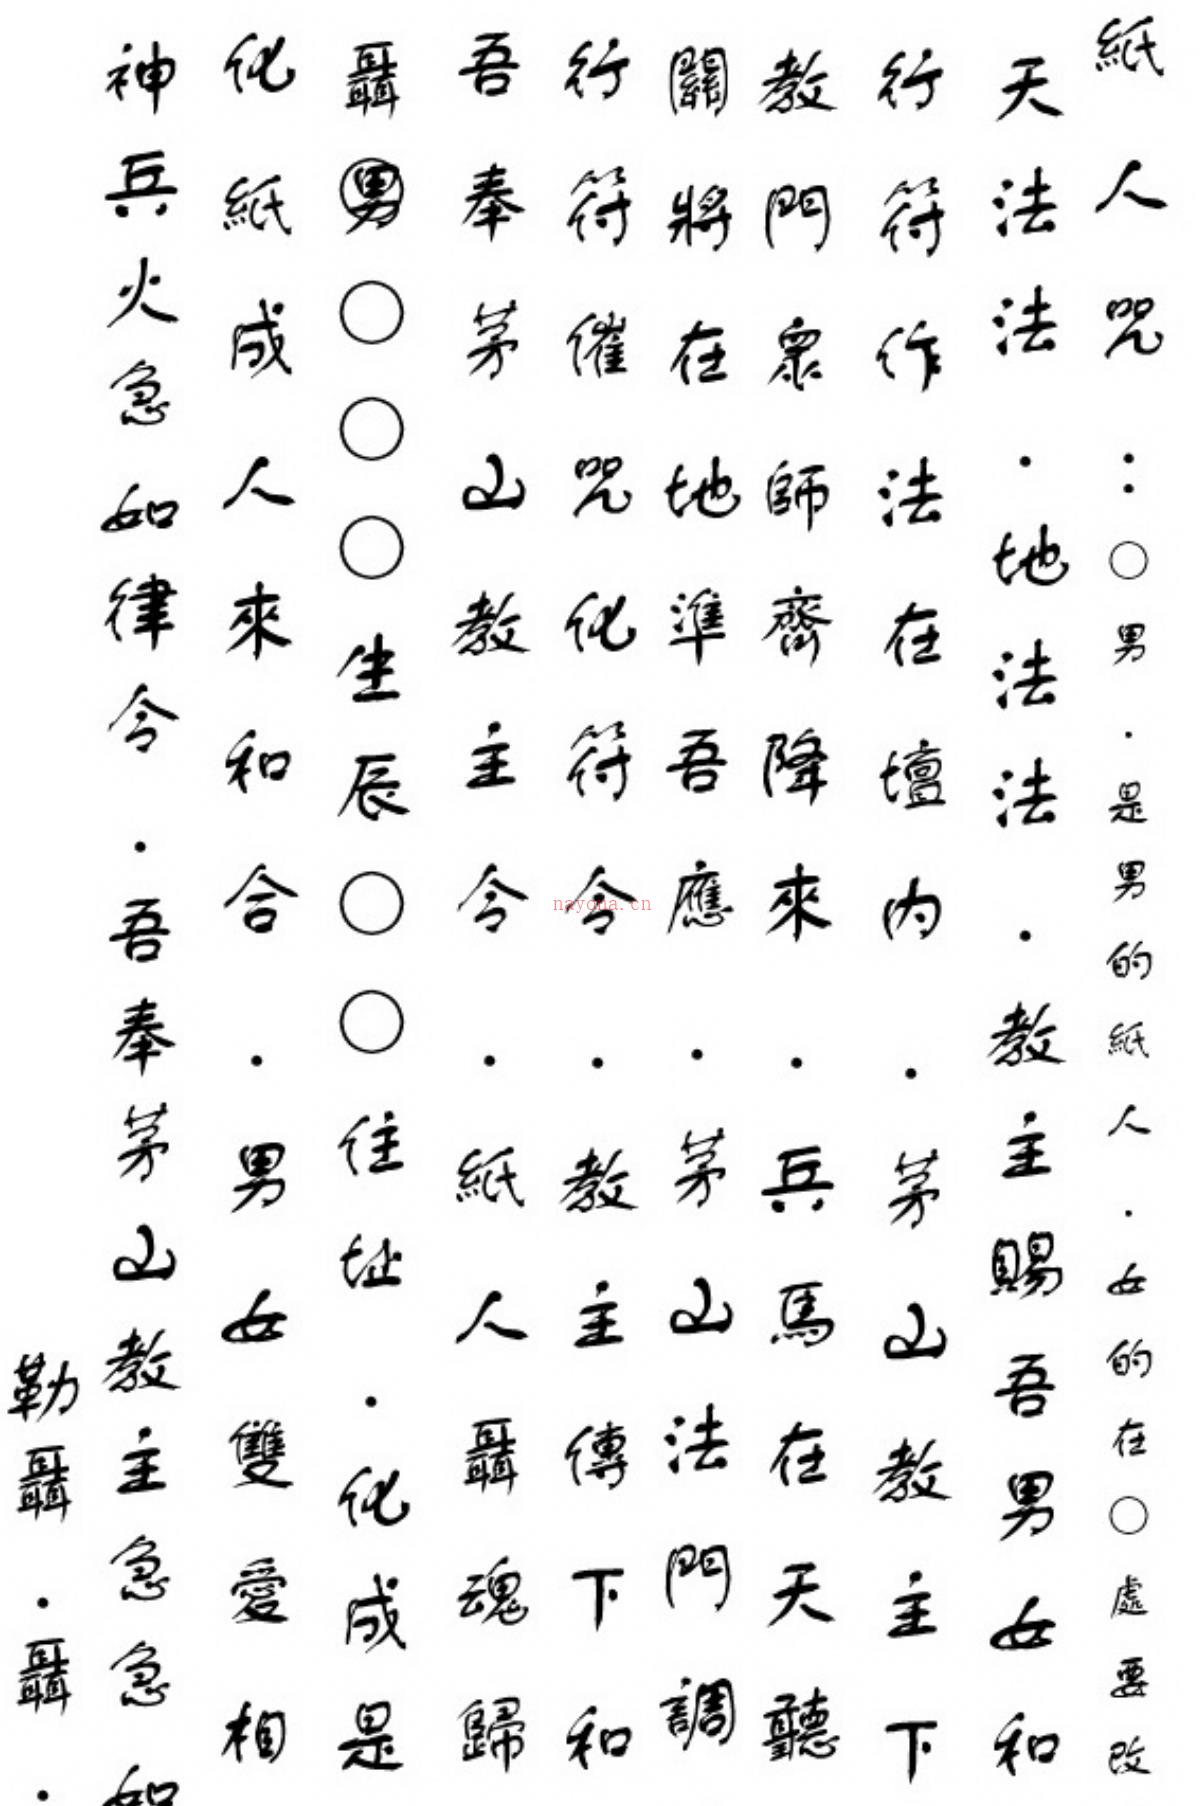 紙人咒：○男．是男的紙人．女的在○處要改
天法法．地法法．教主賜吾男女和
行符作法在壇內．茅山教主下
教門眾師齊降來．兵馬在天聽
關將在地準吾應．茅山法門調
行符催咒化符令．教主傳下和
吾奉茅山教主令．紙人聶魂歸
聶男○○○生辰○○住址．化成是
化紙成人來和合．男女雙愛相
神兵火急如律令．吾奉茅山教主急急
勒聶．聶．
nayona.cn